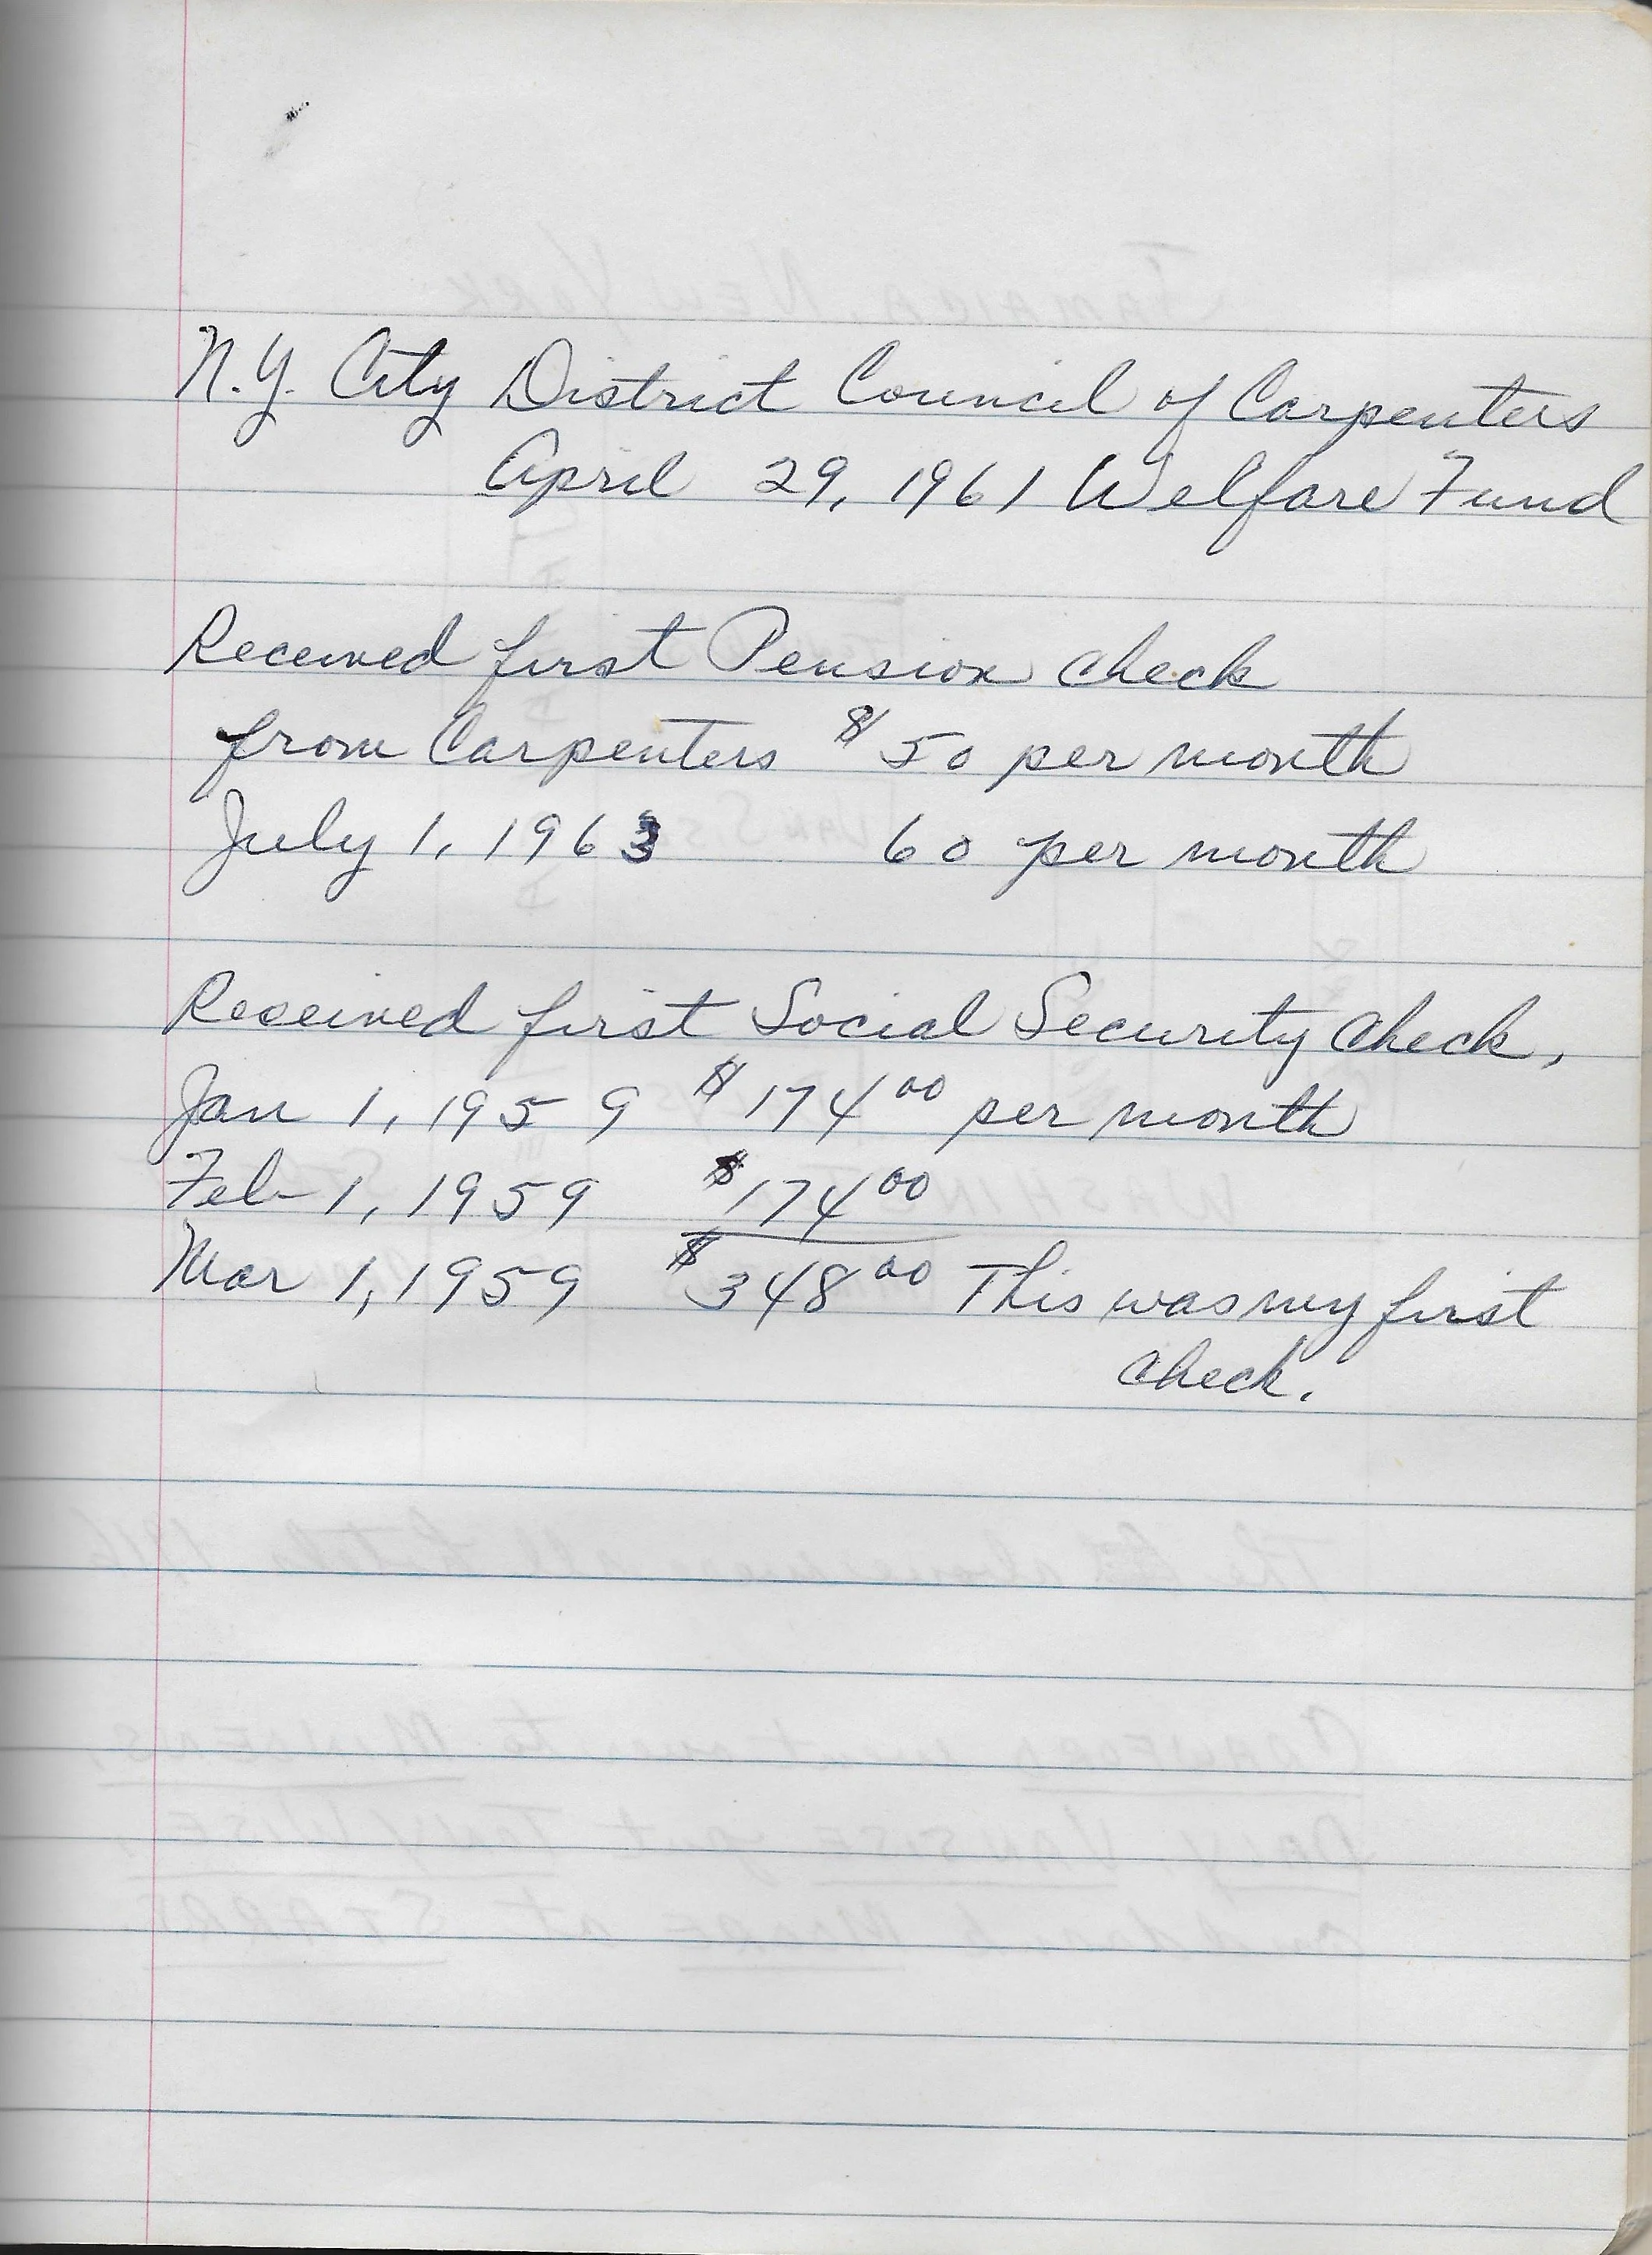 N.Y. City District Council of Carpenters
April 29, 1961 Welfare Fund
Received first Pension check
from Carpenters $50 per month
July 1, 1963 60 per month
Received first Social Security check,
Jan 1, 1959 $174.00 per month
Feb 1, 1959 $174.00
Mar 1, 1959 $348.00 This was my first
check.